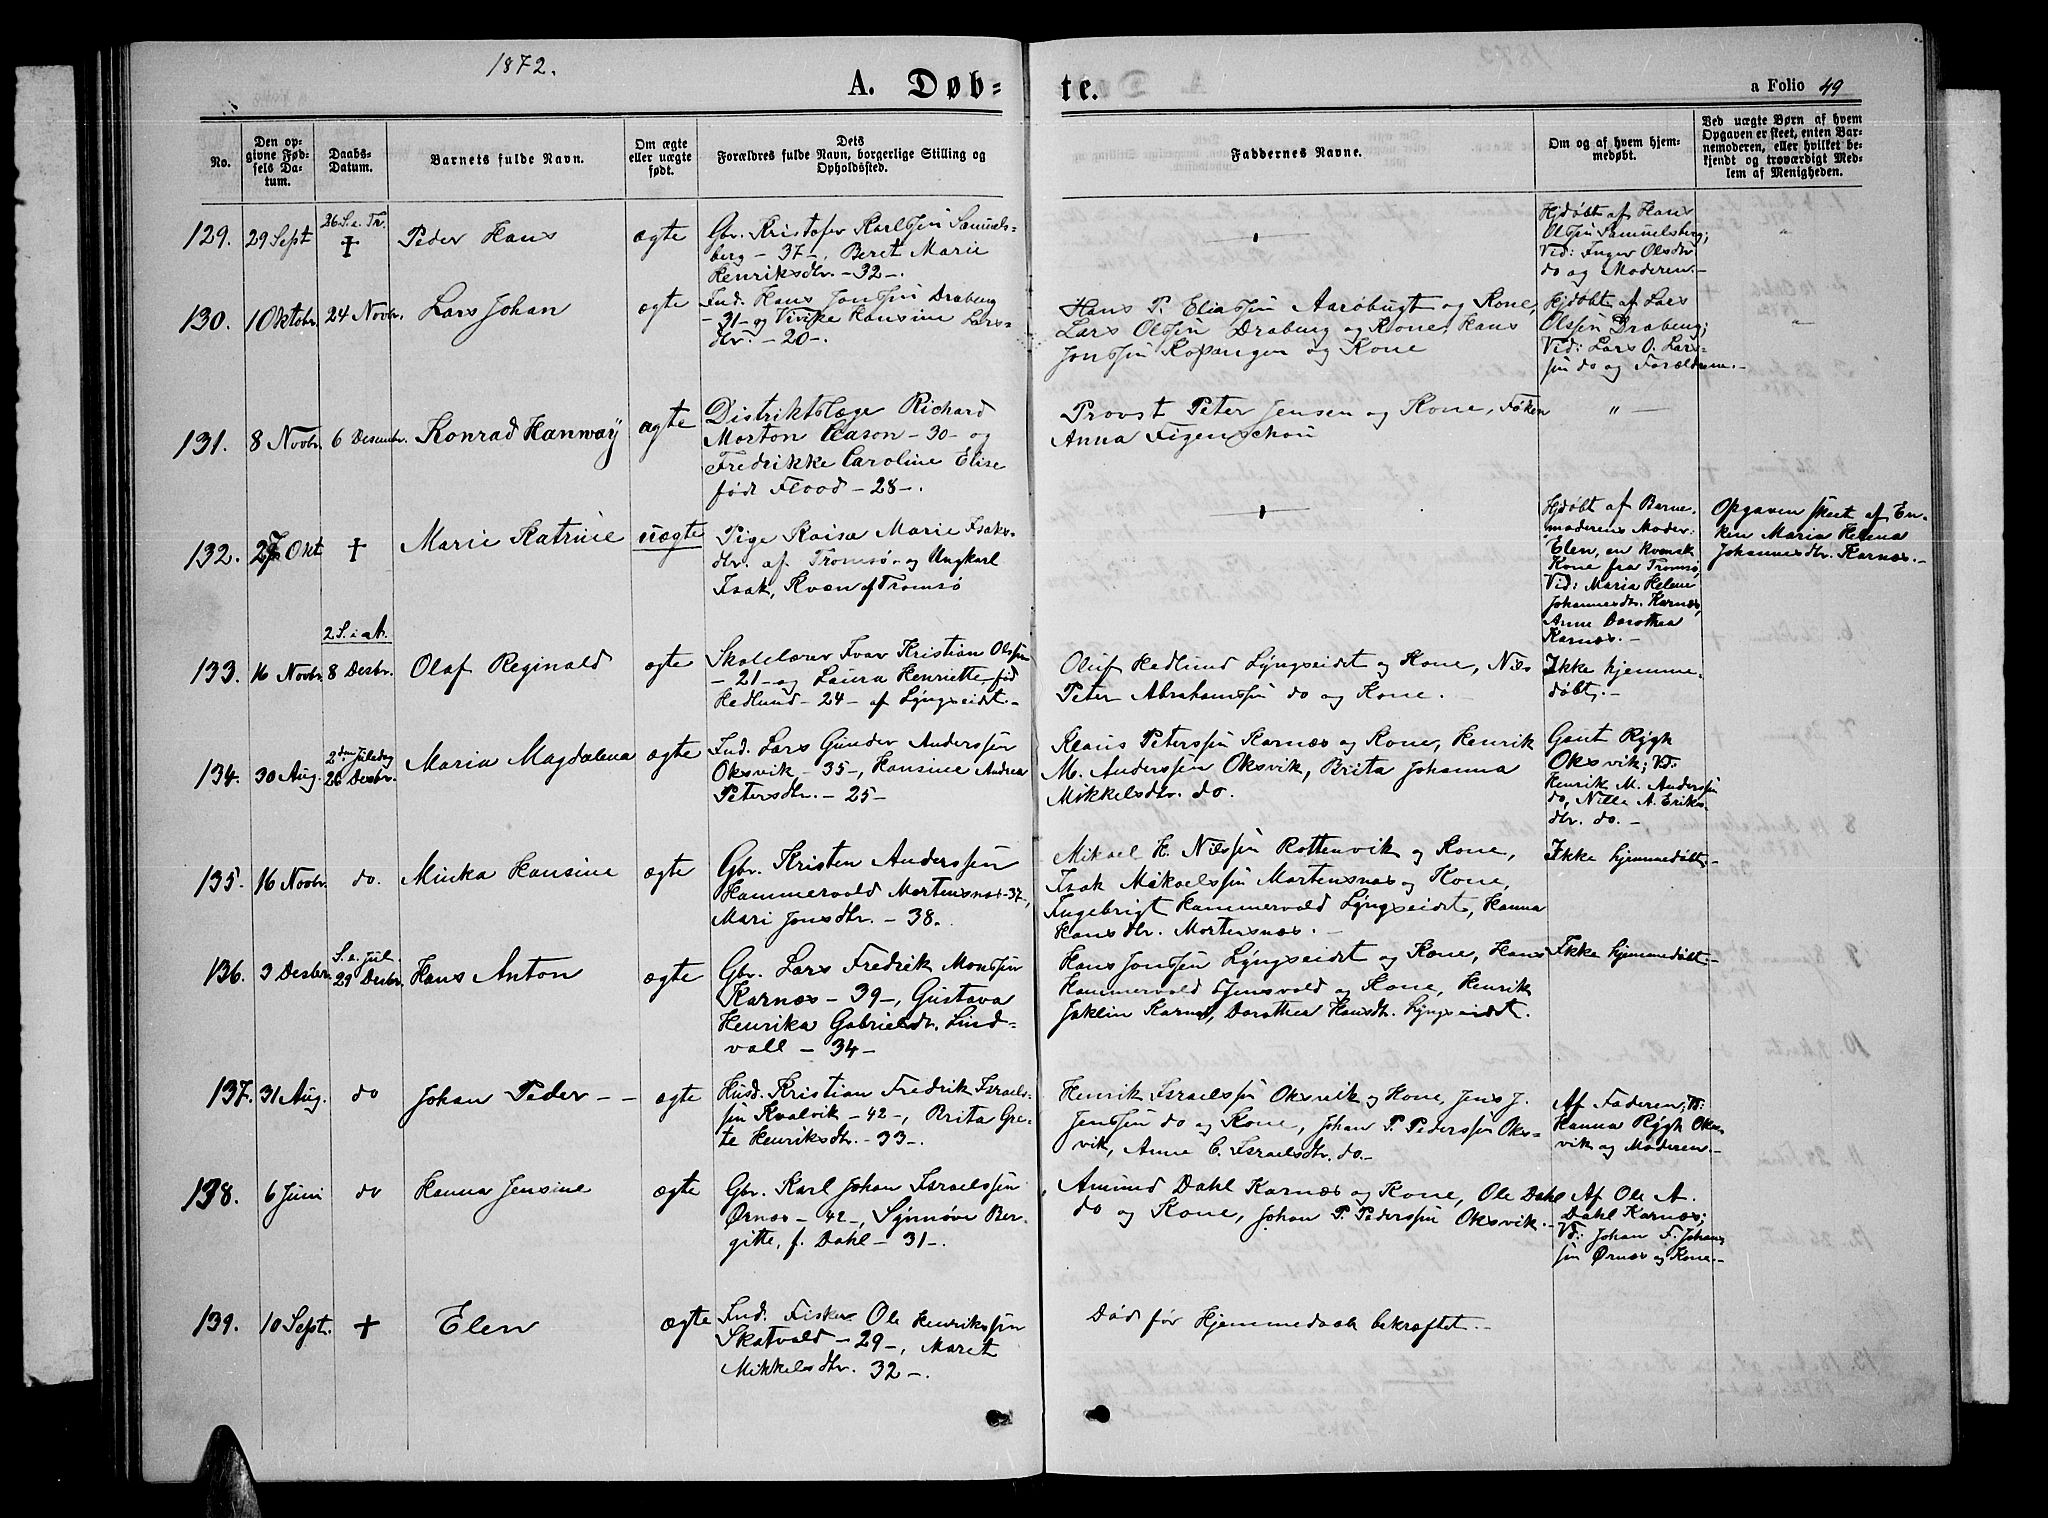 1872.
A. Døb-
te.
a Folio 49
No.
Den op-
givne Fød-
sels Da-
tum.
Daabs-
Datum.
Barnets fulde Navn.
Om ægte
eller uægte
født.
Dets
Forældres fulde Navn, borgerlige Stilling og
Opholdssted.
Faddernes Navne.
Om og af hvem hjem-
medøbt.
Ved uægte Børn af hvem
Opgaven er skeet, enten Bar-
nemoderen, eller hvilket be-
kjendt og troværdigt Med-
lem af Menigheden.
129. 29 Sept
26 S. e. Tr.
†
Peder Hans
ægte
Gbr. Kristofer Karlsen Samuels-
berg - 37 -, Beret Marie
Henriksdtr. - 32 -.
Hjdøbt af Hans
Olssen Samuelsberg;
Vid: Inger Olsdtr
do og Moderen.-
130. 1 Oktobr. 24 Novbr.
Lars Johan
ægte
Ind. Hans Jonssen Drabeng
- 31 - og Vivike Hansine Lars-
dtr. - 20 -.
Hans P. Eliassen Aarøbugt og Kone,
Lars Olssen Drabeng og Kone, Hans
Jonssen Kopangen og Kone
Hjdøbt af Lars
Olssen Drabeng;
Vid: Lars O. Lars-
sen do og Forældrene.-
"
131. 8 Novbr. 6 Desembr.
Konrad Hanway
ægte
Distriktslæge Richard
Morton Cason - 30 - og
Fredrikke Caroline Elise
født Flood - 28 -.
Provst Peter Jensen og Kone, Frøken
Anna Figenschou
" -
132. 27 Okt †
Marie Katrine
uægte
Pige Kaisa Marie Isaks-
dtr. af Tromsø og Ungkarl
Isak, Kvæn af Tromsø
Hjdøbt af Barne-
moderens Moder
Elen, en kvensk
Kone fra Tromsø
Vid: Maria Helene
Johannesdtr. Karnæs,
Anne Dorothea
Karnæs.-
Opgaven skeet af En-
ken Maria Helena
Johannesdtr. Karnæs.-
2 S. i Adv.
133. 16 Novbr. 8 Desbr.
Olaf Reginald
ægte
Skolelærer Ivar Kristian Olssen
- 21 - og Laura Henriette født
Hedlund - 24 - af Lyngseidet.-
Oluf Hedlund Lyngseidet og Kone, Nils
Peter Abrahamssen do og Kone.
Ikke hjemme-
døbt.-
134. 30 Aug.
2den Juledag
26 Desbr.
Maria Magdalena
ægte
Ind. Lars Gunder Anderssen
Oksvik - 35 -, Hansine Andrea
Petersdtr. - 25 -
Klaus Peterssen Karnæs og Kone, Henrik
M. Anderssen Oksvik, Brita Johanna
Mikkelsdtr. do.
Gaut Rygh
Oksvik; Vd.
Henrik M. Anderssen
do, Nille A. Eriks-
dtr. do.-
135. 16 Novbr. do.
Minka Hansine
ægte
Gbr. Kristen Anderssen
Hammervold Mortensnæs - 37,
Mari Jonsdtr. - 38.
Mikael H. Nilssen Rottenvik og Kone,
Isak Mikaelssen Mortensnæs og Kone,
Ingebrigt Hammervold Lyngseidet, Hanna
Hansdtr. Mortensnæs.-
Ikke hjemmedøbt.-
136. 3 Desbr.
S. e. Jul.
29 Desbr.
Hans Anton
ægte
Gbr. Lars Fredrik Monssen
Karnæs - 39 -, Gustava
Henrika Gabrielsdtr. Lind-
vall - 34 -
Hans Jonssen Lyngseidet og Kone, Hans
Hammervold Ejensvold og Kone, Henrik
Joklin Karnæs, Dorothea Hansdtr. Lyngseidet.
Ikke hjemmedøbt.-
137. 31 Aug. do
Johan Peder - -
ægte
Husd. Kristian Fredrik Israels-
sen Kvalvik - 42 -, Brita Gre-
te Henriksdtr. - 33 -.
Henrik Israelssen Oksvik og Kone, Jens J.
Jenssen do og Kone, Johan P. Pederssen Oks-
vik, Anne C. Israelsdtr. do.-
Af Faderen; V:
Hanna Rygh Oks-
vik og Moderen.-
138. 6 Juni do
Hanna Jensine
ægte
Gbr. Karl Johan Israelssen
Ørnæs - 42 -, Synnøve Ber-
gitte, f. Dahl - 31 -.
Amund Dahl Karnæs og Kone, Ole Dahl
do og Kone, Johan P. Pederssen Oksvik.-
Af Ole A.
Dahl Karnæs;
Vd: Johan F. Johans-
sen Ørnæs og Kone.-
139. 10 Sept. †
Elen
ægte
Ind. Fisker Ole Henrikssen
Skatvold - 29 -, Maret
Mikkelsdtr. 32 -.
Død før Hjemmedaab bekræftet.-